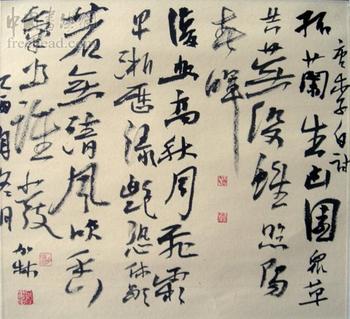 唐李白詩
孤蘭生幽園衆草
共蕪没雖照陽
春暉
復悲高秋月飛霜
早淅瀝綠艷恐休歇
若無清風吹香
氣為誰發
乙酉年冬月